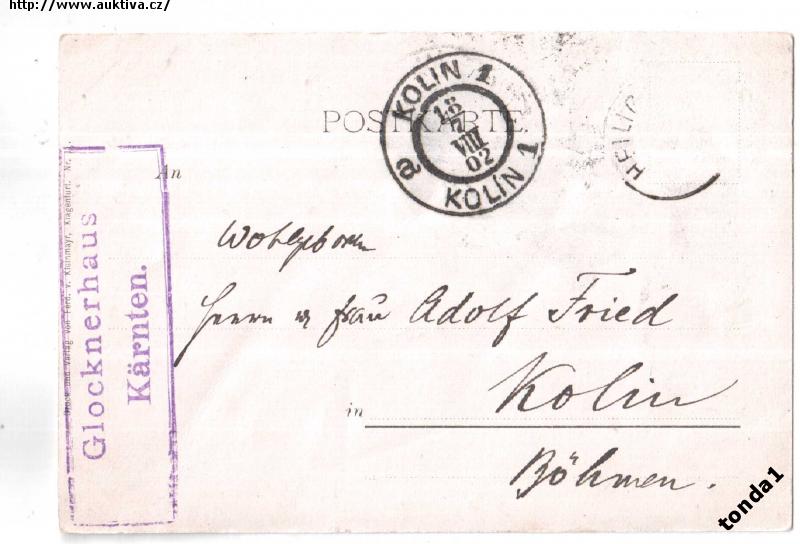 http://www.auktiva.cz/
POSTKARTE.
KOLIN 1
18
VIII
02
KOLÍN 1
a
HEILIG
An
Druck und Verlag von Ferd. v. Kleinmayr, Klagenfurt. Nr.
Glocknerhaus
Kärnten.
Wohlgeboren
Herrn u Frau Adolf Fried
in Kolin
Böhmen.
tonda1